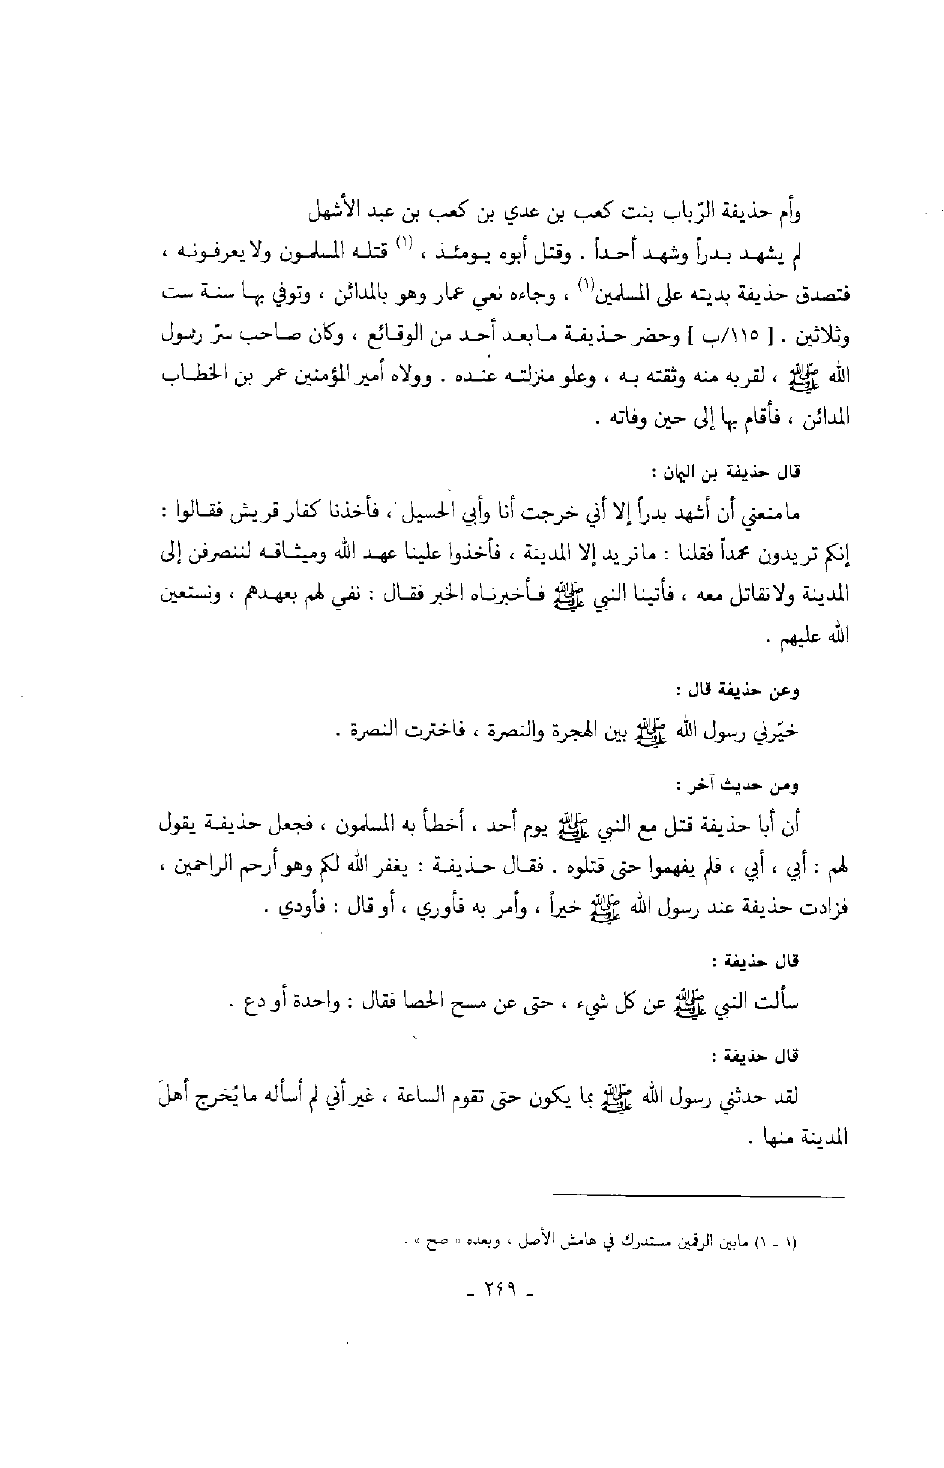 وأم حذيفة الرّباب بنت كعب بن عدي بن كعب بن عبد الأشهل
لم يشهد بدراً وشهد أحداً . وقتل أبوه يومئذ ، (١) قتله المسلمون ولا يعرفونه ،
فتصدق حذيفة بديته على المسلمين(١) ، وجاءه نعي عمار وهو بالمدائن ، وتوفي بها سنة ست
وثلاثين . [ ١١٥/ب ] وحضر حذيفة مابعد أحد من الوقائع ، وكان صاحب سرّ رسول
الله ﷺ ، لقربه منه وثقته به ، وعلو منزلته عنده . وولاه أمير المؤمنين عمر بن الخطاب
المدائن ، فأقام بها إلى حين وفاته .
قال حذيفة بن اليمان :
مامنعني أن أشهد بدراً إلا أني خرجت أنا وأبي الحسيل ، فأخذنا كفار قريش فقالوا :
إنكم تريدون محمداً فقلنا : مانريد إلا المدينة ، فأخذوا علينا عهد الله وميثاقه لننصرفن إلى
المدينة ولانقاتل معه ، فأتينا النبي ﷺ فأخبرناه الخبر فقال : نفي لهم بعهدهم ، ونستعين
الله عليهم .
وعن حذيفة قال :
خيّرني رسول الله ﷺ بين الهجرة والنصرة ، فاخترت النصرة .
ومن حديث آخر :
أن أبا حذيفة قتل مع النبي ﷺ يوم أحد ، أخطأ به المسلمون ، فجعل حذيفة يقول
لهم : أبي ، أبي ، فلم يفهموا حتى قتلوه . فقال حذيفة : يغفر الله لكم وهو أرحم الراحمين ،
فزادت حذيفة عند رسول الله ﷺ خيراً ، وأمر به فأوري ، أو قال : فأودي .
قال حذيفة :
سألت النبي ﷺ عن كل شيء ، حتى عن مسح الحصا فقال : واحدة أو دع .
قال حذيفة :
لقد حدثني رسول الله ﷺ بما يكون حتى تقوم الساعة ، غير أني لم أسأله مايُخرج أهلَ
المدينة منها .
(١ - ١) مابين الرقمين مستدرك في هامش الأصل ، وبعده « صح » .
- ٢٤٩ -